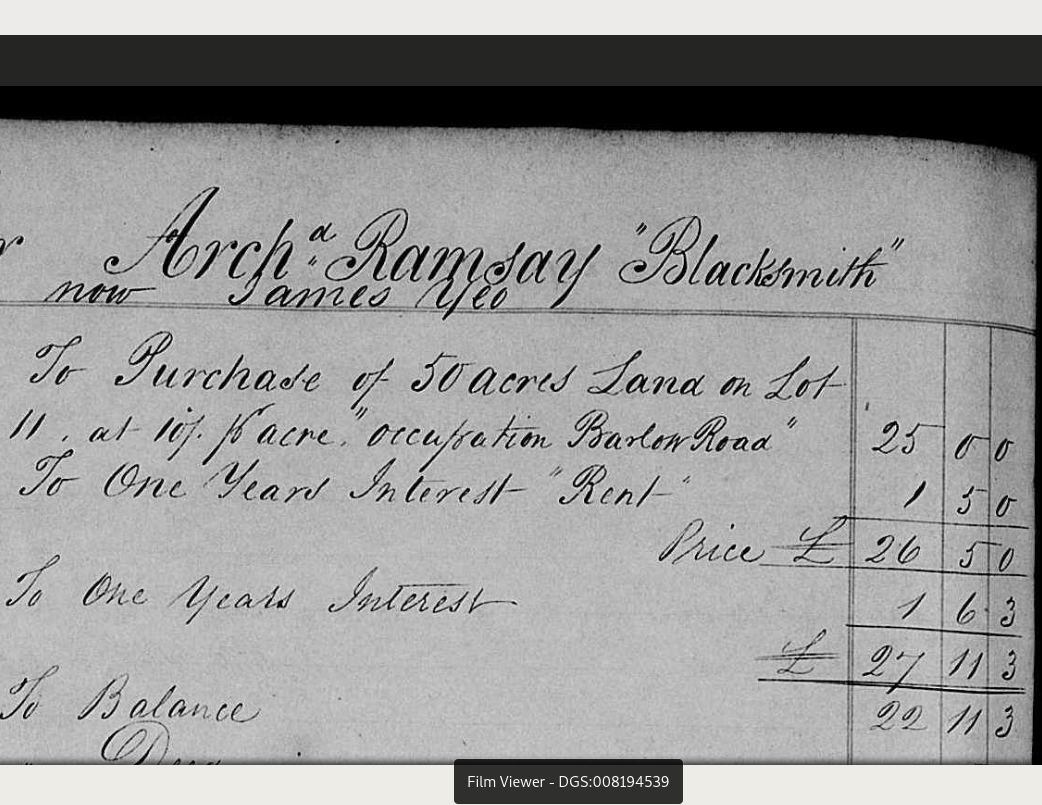 Archd Ramsay "Blacksmith"
now James Yeo
To Purchase of 50 acres Land on Lot
11. at 10/. p acre. "occupation Barlow Road" 25 0 0
To One Years Interest "Rent" 1 5 0
Price £ 26 5 0
To One Years Interest 1 6 3
£ 27 11 3
To Balance 22 11 3
Film Viewer - DGS:008194539